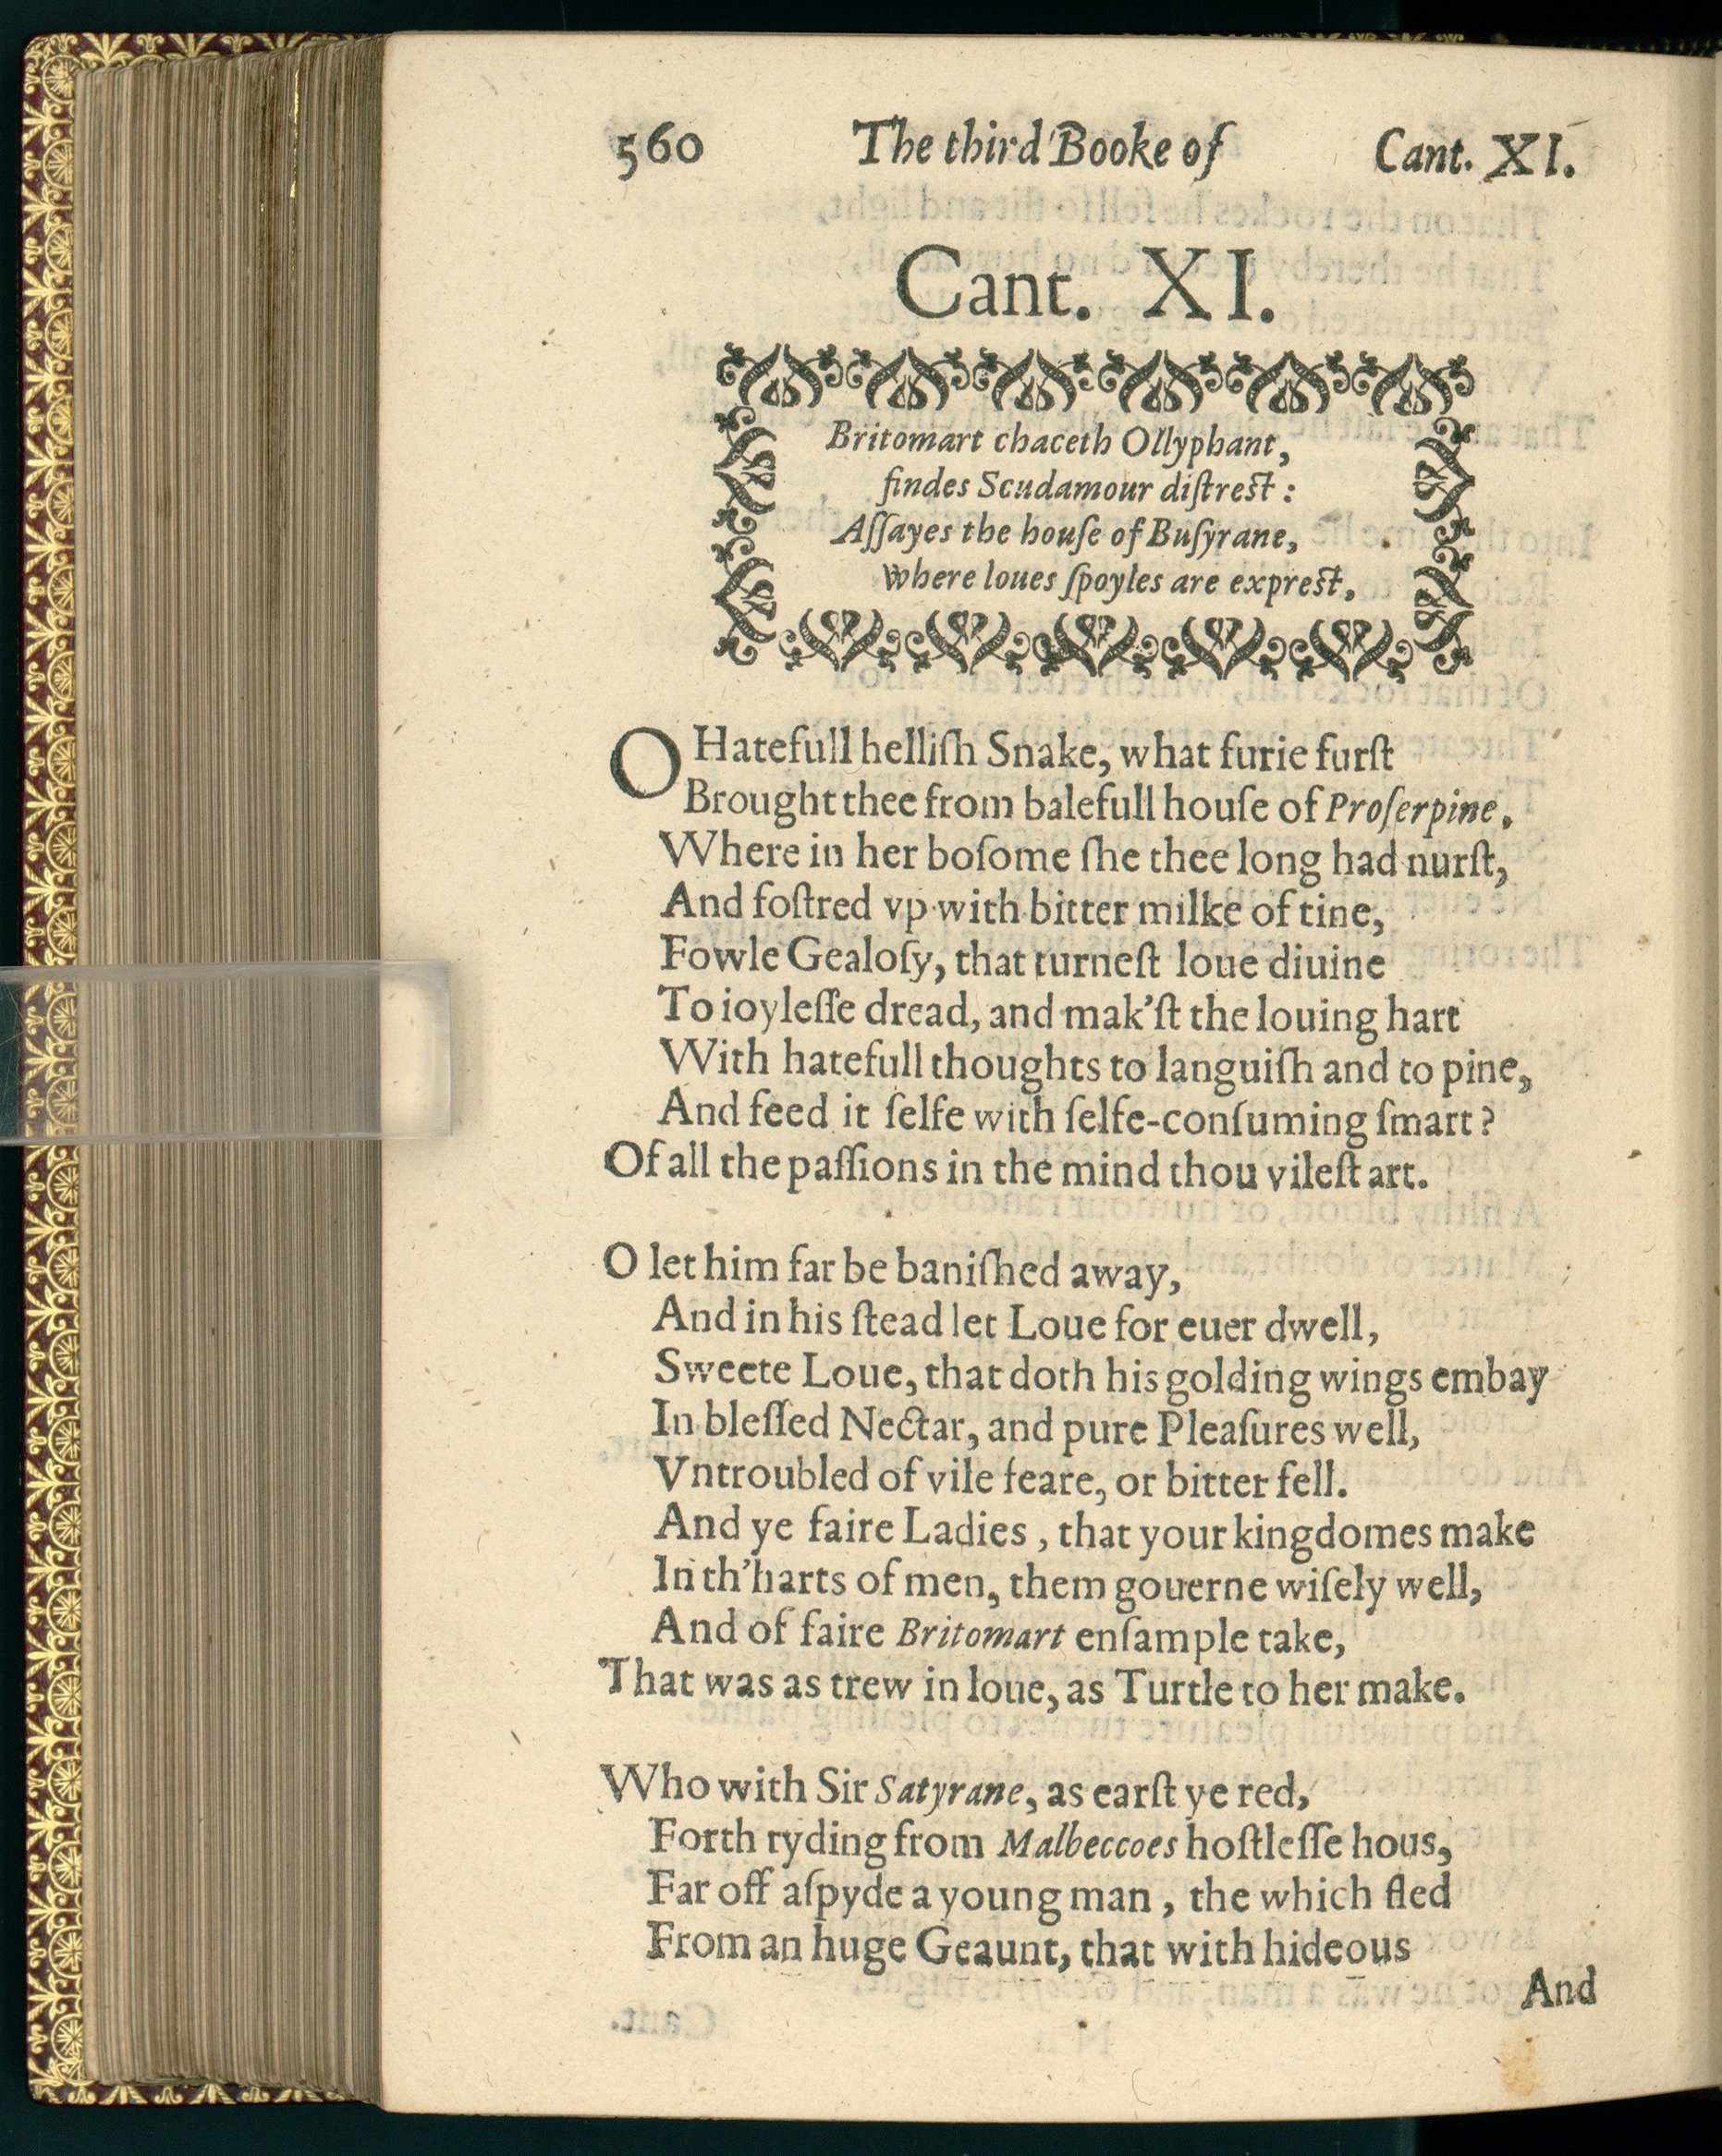 560 The third Booke of Cant. XI.
Cant. XI.
Britomart chaceth Ollyphant,
findes Scudamour diſtreſt:
Aſſayes the houſe of Buſyrane,
where loues ſpoyles are expreſt.
O Hatefull helliſh Snake, what furie furſt
Brought thee from balefull houſe of Proſerpine,
Where in her boſome ſhe thee long had nurſt,
And foſtred vp with bitter milke of tine,
Fowle Gealoſy, that turneſt loue diuine
To ioyleſſe dread, and mak'ſt the louing hart
With hatefull thoughts to languiſh and to pine,
And feed it ſelfe with ſelfe-conſuming ſmart?
Of all the paſſions in the mind thou vileſt art.
O let him far be baniſhed away,
And in his ſtead let Loue for euer dwell,
Sweete Loue, that doth his golding wings embay
In bleſſed Nectar, and pure Pleaſures well,
Vntroubled of vile feare, or bitter fell.
And ye faire Ladies, that your kingdomes make
In th'harts of men, them gouerne wiſely well,
And of faire Britomart enſample take,
That was as trew in loue, as Turtle to her make.
Who with Sir Satyrane, as earſt ye red,
Forth ryding from Malbeccoes hoſtleſſe hous,
Far off aſpyde a young man, the which fled
From an huge Geaunt, that with hideous
And